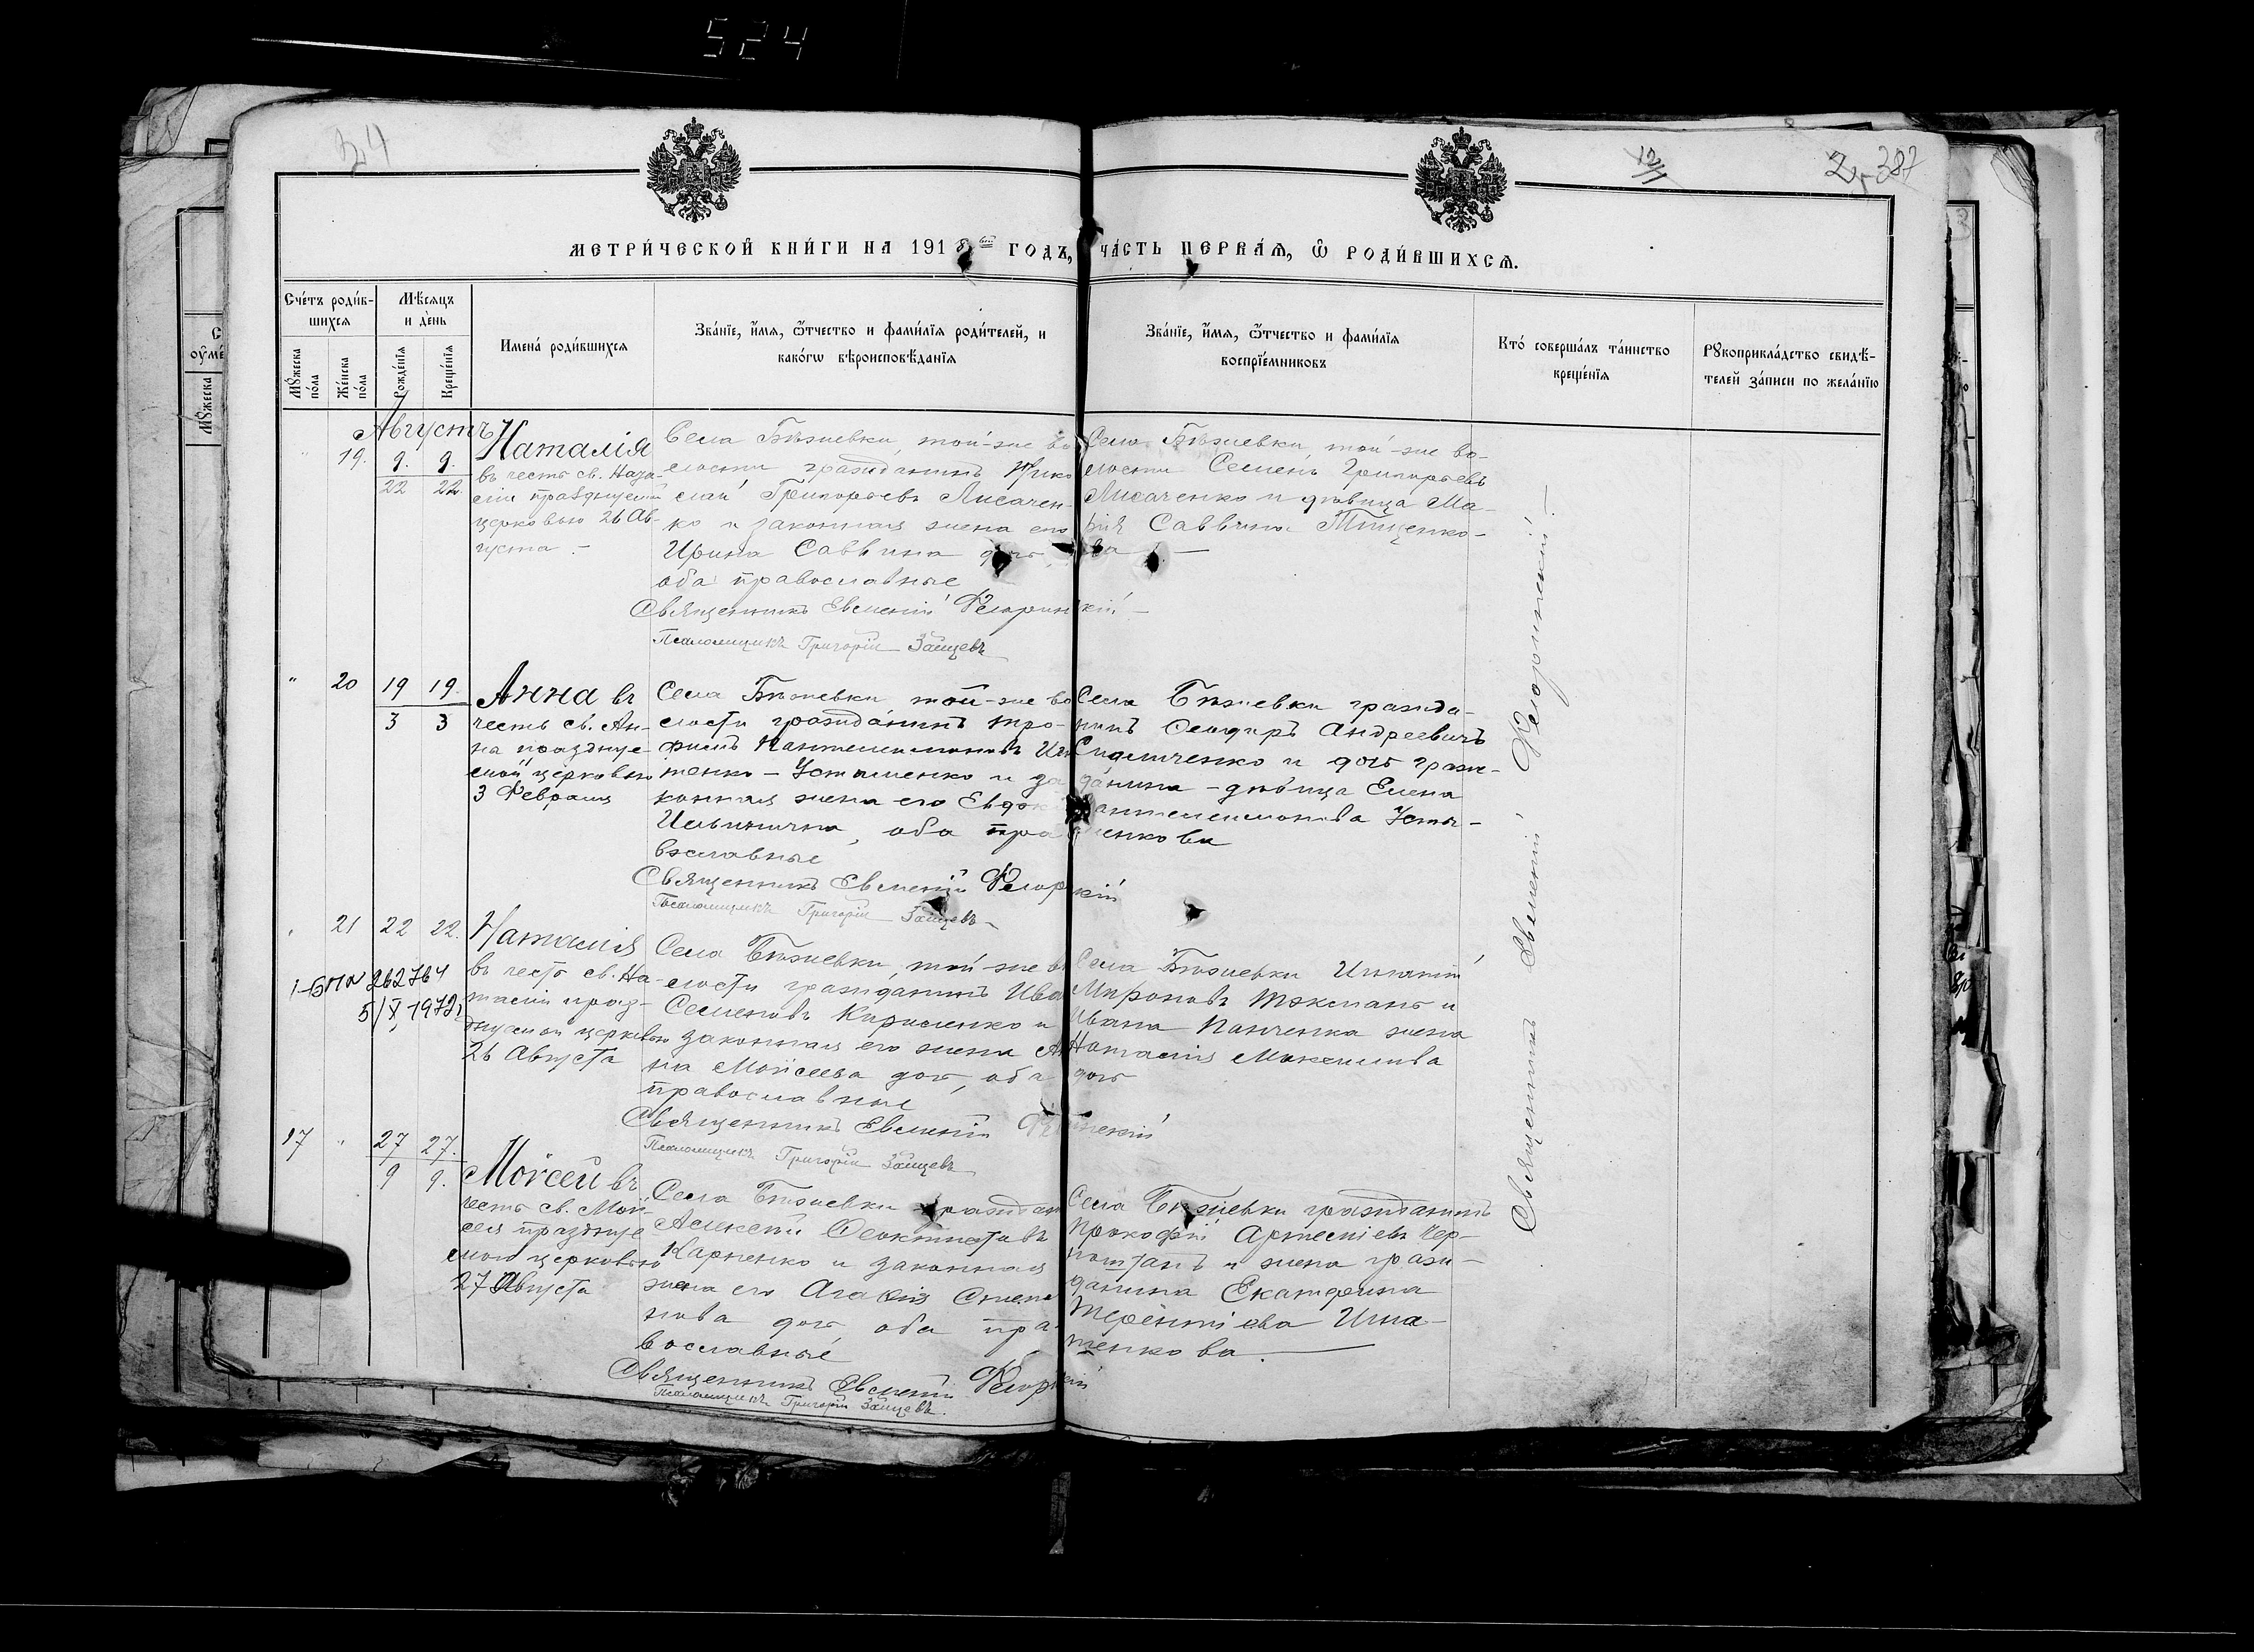 524
34
12/1
387
МЕТРИ́ЧЕСКОЙ КНИ́ГИ НА 1918 ГОДЪ, ЧА́СТЬ ПЕРВА́Ѧ, Ѽ РОДИ́ВШИХСѦ.
Сче́тъ роди́в-
шихсѧ
Мꙋ́жеска по́ла
Же́нска по́ла
Мѣ́сѧцъ
и де́нь
Рожде́нїѧ
Креще́нїѧ
Имена́ роди́вшихсѧ
Зва́нїе, и́мѧ, ѻ́тчество и фами́лїѧ роди́телей, и
како́гѡ вѣроисповѣ́данїѧ
Зва́нїе, и́мѧ, ѻ́тчество и фами́лїѧ
воспрїе́мниковъ
Кто́ соверша́лъ та́инство
креще́нїѧ
Рꙋкоприкла́дство свидѣ́-
телей за́писи по жела́нїю
Августъ
19. 9. 9.
22 22.
Наталія
въ честь св. Ната-
ліи празднуемой
церковью 26 Ав-
густа. -
Села Бѣжевки, той-же во
лости гражданинъ Нико
лай Григорьевъ Лисачен-
ко и законная жена его
Ирина Саввина дочь,
оба православные
Священникъ Евменій
Псаломщикъ Григорій Зайцевъ
Села Бѣжевки, той-же во-
лости Семенъ Григорьевъ
Лисаченко и дѣвица Ма-
рія Саввина Тищенко-
ва. -
" 20 19 19.
3 3
Анна въ
честь св. Ан-
на праздpуе-
мой церковью
3 Февраля
Села Бѣжевки, той-же во
лости гражданинъ Тро-
фимъ Пантелеимоновъ
тенко - Устименко и за
конная жена его Евдок
Ильинична, оба пра
вославные
Священникъ Евменій
Псаломщикъ Григорій Зайцевъ
Села Бѣжевки гражда-
нинъ Ѳеодоръ Андреевичъ
и дочь граж-
данина - дѣвица Елена
Пантелеимонова Усти-
менкова
" 21 22 22.
262764
5/X 1972
Наталія
въ честь св. На-
таліи празд-
нуемой церковью
26 Августа
Села Бѣжевки, той-же во
лости гражданинъ Ива
Семеновъ Кириленко и
законная его жена Ан
на Моисеева дочь, оба
православные
Священникъ Евменій
Псаломщикъ Григорій Зайцевъ
Села Бѣжевки Игнатій
Мироновъ и
Ивана Панченка жена
Наталія Максимова
дочь
17 " 27 27.
9 9.
Моисей въ
честь св. Мои-
сея празднуе
мого церковью
27 Августа
Села Бѣжевки граждан
Алексѣй Ѳеоктистовъ
Карпенко и законная
жена его Агафія Степа
нова дочь, оба пра-
вославные
Священникъ Евменій
Псаломщикъ Григорій Зайцевъ.
Села Бѣжевки гражданинъ
Прокофій Артеміевъ Чер-
ноштанъ и жена граж-
данина Екатерина
Терентіева Игна-
тенкова.
Священникъ Евменій